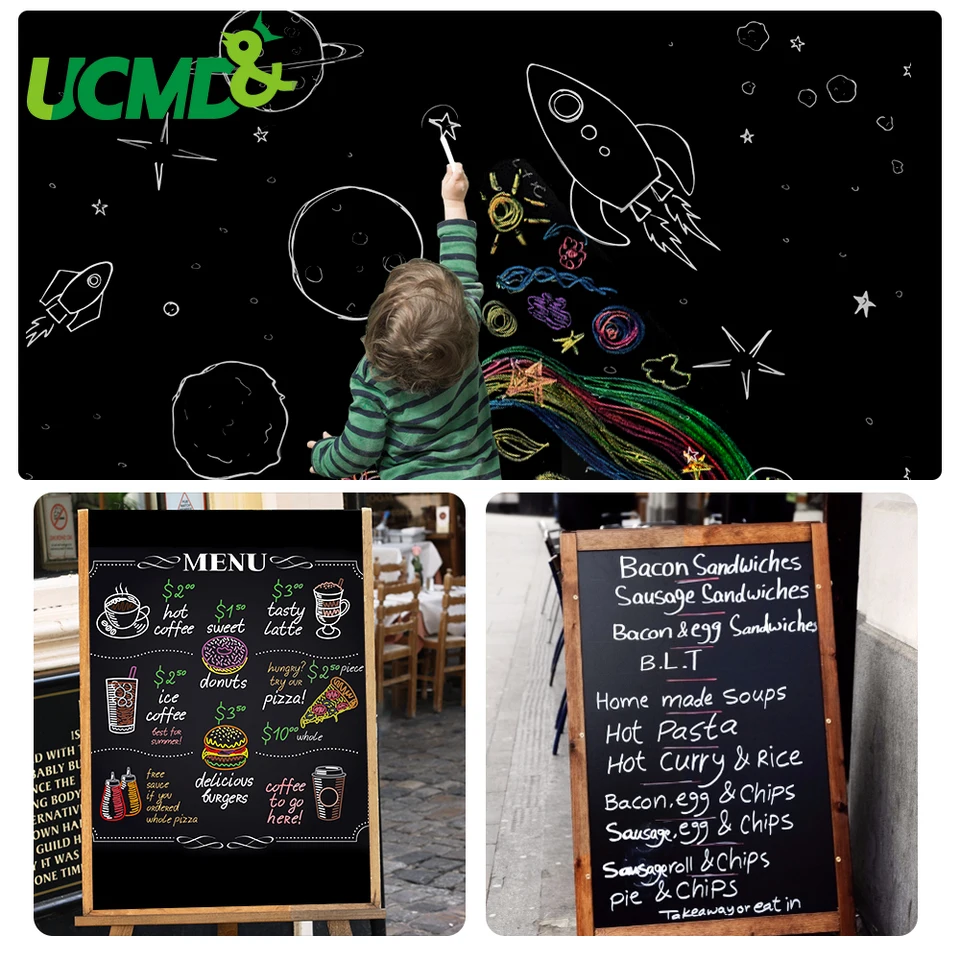 UCMD&
MENU
$2⁰⁰
hot
coffee
$1⁵⁰
sweet
donuts
$3⁰⁰
tasty
latte
$2⁵⁰
ice
coffee
best for
summer!
$3⁵⁰
delicious
burgers
hungry?
try our
pizza!
$2⁵⁰ piece
$10⁰⁰ whole
free
sauce
if you
ordered
whole pizza
coffee
to go
here!
IS
D WITH
ABLY BU
NCE THE
NG BODY
ERNATIV
OWN HA
GUILD H
Y IT WAS
ONE TIM
Bacon Sandwiches
Sausage Sandwiches
Bacon & egg Sandwiches
B.L.T
Home made Soups
Hot Pasta
Hot Curry & Rice
Bacon, egg & Chips
Sausage, egg & Chips
Sausageroll & Chips
pie & Chips
Takeaway or eat in